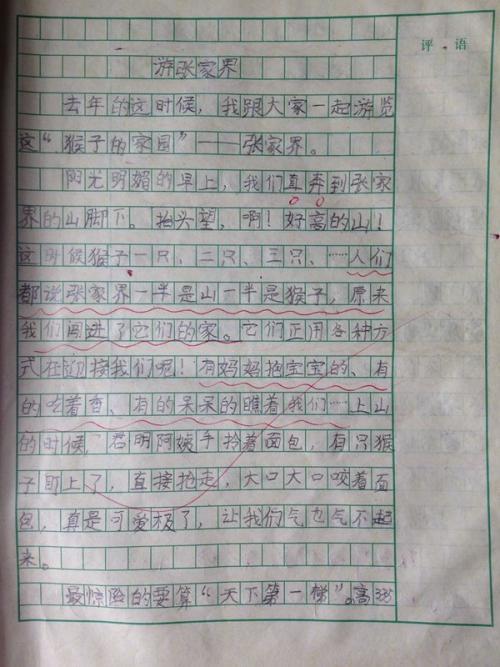 评 语
游张家界
去年的这时候，我跟大家一起游览
这“猴子的家园”——张家界。
阳光明媚的早上，我们直奔到张家
界的山脚下。抬头望，啊！好高的山！
这时候猴子一只、二只、三只、……人们
都说张家界一半是山一半是猴子，原来
我们闯进了它们的家。它们正用各种方
式在迎接我们呢！有妈妈抱宝宝的、有
的吃着香、有的呆呆的瞧着我们……上山
的时候，君明阿姨手拎着面包，有只猴
子盯上了，直接抢走，大口大口咬着面
包，真是可爱极了，让我们气也气不起
来。
最惊险的要算“天下第一梯”。高335